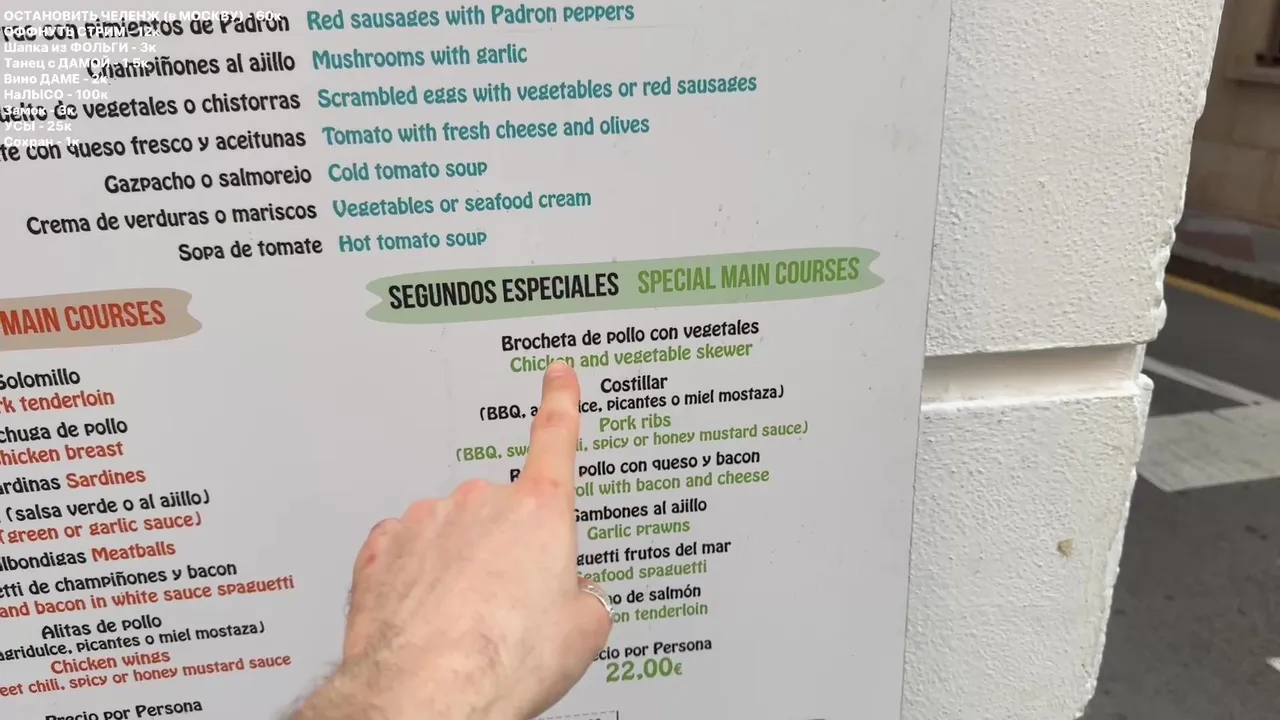 ОСТАНОВИТЬ ЧЕЛЕНЖ (в МОСКВУ) - 60к
ОФФНУТЬ СТРИМ - 12к
Шапка из ФОЛЬГИ - 3к
Танец с ДАМОЙ - 1.5к
Вино ДАМЕ - 2к
НаЛЫСО - 100к
Замок - 3к
УСЫ - 25к
Сохран - 1к
con pimientos de Padrón Red sausages with Padron peppers
Champiñones al ajillo Mushrooms with garlic
de vegetales o chistorras Scrambled eggs with vegetables or red sausages
con queso fresco y aceitunas Tomato with fresh cheese and olives
Gazpacho o salmorejo Cold tomato soup
Crema de verduras o mariscos Vegetables or seafood cream
Sopa de tomate Hot tomato soup
MAIN COURSES
Solomillo
rk tenderloin
chuga de pollo
hicken breast
ardinas Sardines
(salsa verde o al ajillo)
(green or garlic sauce)
lbondigas Meatballs
etti de champiñones y bacon
and bacon in white sauce spaguetti
Alitas de pollo
agridulce, picantes o miel mostaza)
Chicken wings
eet chili, spicy or honey mustard sauce
Precio por Persona
SEGUNDOS ESPECIALES SPECIAL MAIN COURSES
Brocheta de pollo con vegetales
Chicken and vegetable skewer
Costillar
(BBQ, a ice, picantes o miel mostaza)
Pork ribs
(BBQ, swe i, spicy or honey mustard sauce)
pollo con queso y bacon
oll with bacon and cheese
Gambones al ajillo
Garlic prawns
guetti frutos del mar
Seafood spaguetti
o de salmón
on tenderloin
cio por Persona
22,00€